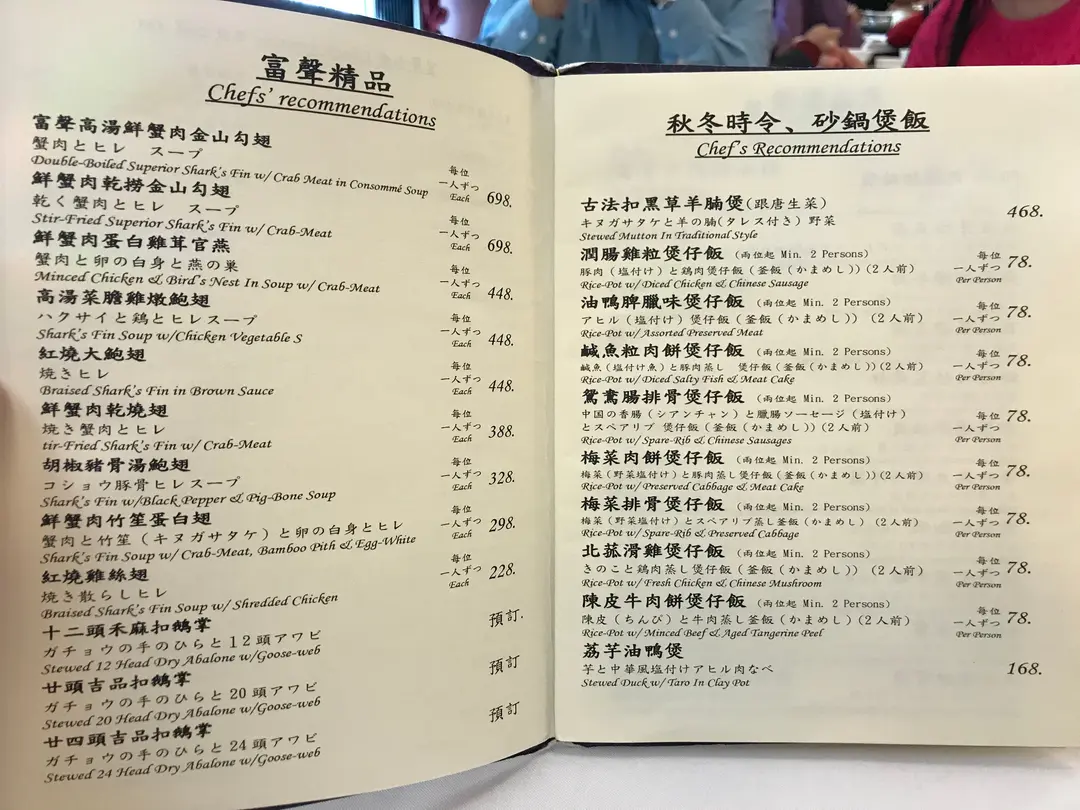 富聲精品
Chefs' recommendations
富聲高湯鮮蟹肉金山勾翅
蟹肉とヒレ　スープ
Double-Boiled Superior Shark's Fin w/ Crab Meat in Consommé Soup
每位
一人ずつ
Each
698.
鮮蟹肉乾撈金山勾翅
乾く蟹肉とヒレ　スープ
Stir-Fried Superior Shark's Fin w/ Crab-Meat
每位
一人ずつ
Each
698.
鮮蟹肉蛋白雞茸官燕
蟹肉と卵の白身と燕の巢
Minced Chicken & Bird's Nest In Soup w/ Crab-Meat
每位
一人ずつ
Each
448.
高湯菜膽雞燉鮑翅
ハクサイと鶏とヒレスープ
Shark's Fin Soup w/Chicken Vegetable S
每位
一人ずつ
Each
448.
紅燒大鮑翅
焼きヒレ
Braised Shark's Fin in Brown Sauce
每位
一人ずつ
Each
448.
鮮蟹肉乾燒翅
焼き蟹肉とヒレ
tir-Fried Shark's Fin w/ Crab-Meat
每位
一人ずつ
Each
388.
胡椒豬骨湯鮑翅
コショウ豚骨ヒレスープ
Shark's Fin w/Black Pepper & Pig-Bone Soup
每位
一人ずつ
Each
328.
鮮蟹肉竹笙蛋白翅
蟹肉と竹笙（キヌガサタケ）と卵の白身とヒレ
Shark's Fin Soup w/ Crab-Meat, Bamboo Pith & Egg-White
每位
一人ずつ
Each
298.
紅燒雞絲翅
焼き散らしヒレ
Braised Shark's Fin Soup w/ Shredded Chicken
每位
一人ずつ
Each
228.
十二頭禾麻扣鵝掌
ガチョウの手のひらと12頭アワビ
Stewed 12 Head Dry Abalone w/Goose-web
預訂.
廿頭吉品扣鵝掌
ガチョウの手のひらと20頭アワビ
Stewed 20 Head Dry Abalone w/Goose-web
預訂
廿四頭吉品扣鵝掌
ガチョウの手のひらと24頭アワビ
Stewed 24 Head Dry Abalone w/Goose-web
預訂
秋冬時令、砂鍋煲飯
Chef's Recommendations
古法扣黑草羊腩煲(跟唐生菜)
キヌガサタケと羊の腩(タレス付き) 野菜
Stewed Mutton In Traditional Style
468.
潤腸雞粒煲仔飯 (兩位起 Min. 2 Persons)
豚肉（塩付け）と鶏肉煲仔飯（釜飯（かまめし））(2人前)
Rice-Pot w/ Diced Chicken & Chinese Sausage
每位
一人ずつ
Per Person
78.
油鴨脾臘味煲仔飯 (兩位起 Min. 2 Persons)
アヒル（塩付け）煲仔飯（釜飯（かまめし）） (2人前)
Rice-Pot w/ Assorted Preserved Meat
每位
一人ずつ
Per Person
78.
鹹魚粒肉餅煲仔飯 (兩位起 Min. 2 Persons)
鹹魚（塩付け魚）と豚肉蒸し　煲仔飯（釜飯（かまめし））(2人前)
Rice-Pot w/ Diced Salty Fish & Meat Cake
每位
一人ずつ
Per Person
78.
鴛鴦腸排骨煲仔飯 (兩位起 Min. 2 Persons)
中国の香腸（シアンチャン）と臘腸ソーセージ（塩付け）
とスペアリブ 煲仔飯（釜飯（かまめし））(2人前)
Rice-Pot w/ Spare-Rib & Chinese Sausages
每位
一人ずつ
Per Person
78.
梅菜肉餅煲仔飯 (兩位起 Min. 2 Persons)
梅菜（野菜塩付け）と豚肉蒸し煲仔飯（釜飯（かまめし））(2人前)
Rice-Pot w/ Preserved Cabbage & Meat Cake
每位
一人ずつ
Per Person
78.
梅菜排骨煲仔飯 (兩位起 Min. 2 Persons)
梅菜（野菜塩付け）とスペアリブ蒸し釜飯（かまめし） (2人前)
Rice-Pot w/ Spare-Rib & Preserved Cabbage
每位
一人ずつ
Per Person
78.
北菰滑雞煲仔飯 (兩位起 Min. 2 Persons)
きのこと鶏肉蒸し煲仔飯（釜飯（かまめし）） (2人前)
Rice-Pot w/ Fresh Chicken & Chinese Mushroom
每位
一人ずつ
Per Person
78.
陳皮牛肉餅煲仔飯 (兩位起 Min. 2 Persons)
陳皮（ちんぴ）と牛肉蒸し釜飯（かまめし）(2人前)
Rice-Pot w/ Minced Beef & Aged Tangerine Peel
每位
一人ずつ
Per Person
78.
荔芋油鴨煲
芋と中華風塩付けアヒル肉なべ
Stewed Duck w/ Taro In Clay Pot
168.